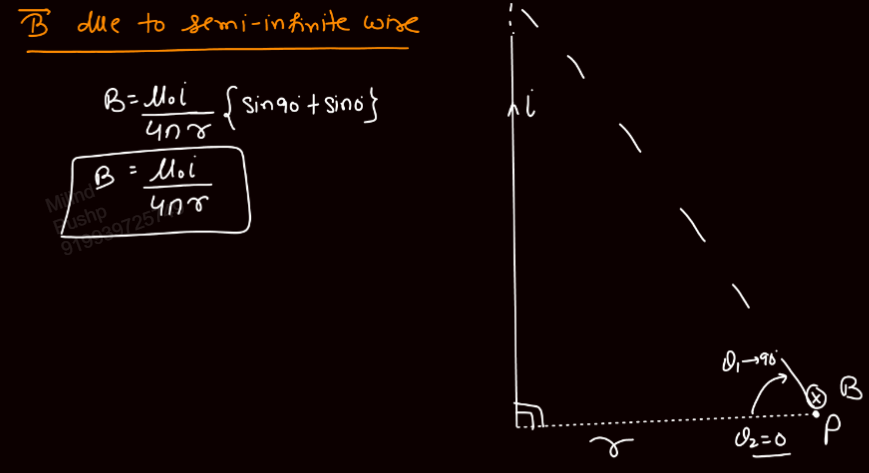 B⃗ due to semi-infinite wire
B = μ₀i / 4πr {sin90° + sin0°}
B = μ₀i / 4πr
Milind
Pushp
i
θ₁→90°
B
P
θ₂=0
r